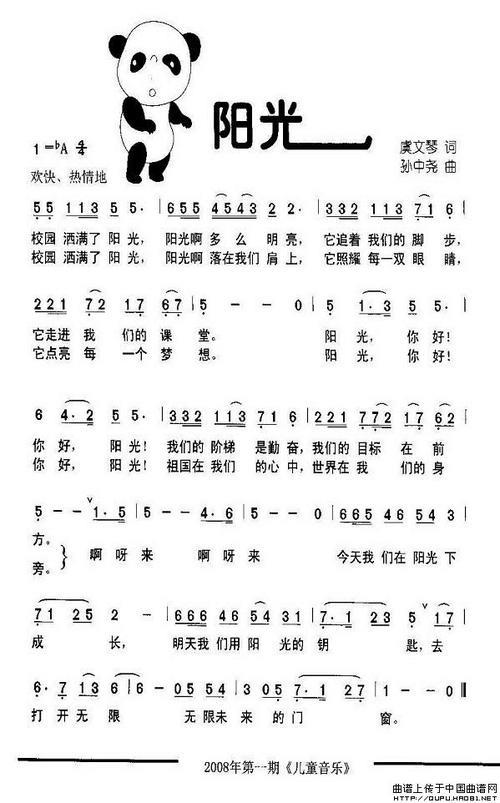 阳光
1=♭A 4/4
欢快、热情地
虞文琴 词
孙中尧 曲
5 5 1 1 3 5 5· | 6 5 5 4 5 4 3 2 2· | 3 3 2 1 1 3 7 1 6 |
校园 洒满了 阳光， 阳光啊 多 么 明亮， 它追着 我们的 脚 步，
校园 洒满了 阳光， 阳光啊 落在我们 肩上， 它照耀 每一双 眼 睛，
2 2 1 7 2 1 7 6 7 | 5 - - 0 | 5 1·3 5 5 |
它走进 我 们的 课 堂。 阳 光， 你 好！
它点亮 每 一个 梦 想。 阳 光， 你 好！
6 4·2 5 5· | 3 3 2 1 1 3 7 1 6 | 2 2 1 7 7 2 1 7 6 2 |
你 好， 阳 光！ 我们的 阶梯 是勤 奋，我们的 目标 在 前
你 好， 阳 光！ 祖国在 我们 的心 中，世界在 我 们的 身
5 - - 1·5 | 5 - - 4·6 | 5 - - 0 | 6 6 5 4 6 5 4 3 |
方。
旁。
啊 呀 来 啊 呀 来 今天我 们在 阳光 下
7 1 2 5 2 - | 6 6 6 4 6 5 4 3 1 | 7·1 2 3 5 1 7 |
成 长， 明天我 们用 阳 光的 钥 匙，去
6·7 1 3 6 | 6 - 0 5 5 4 | 3 0 5 7·1 2 7 | 1 - - 0 ‖
打 开 无 限 无 限未 来 的 门 窗。
2008年第一期《儿童音乐》
曲谱上传于中国曲谱网
http://QUPU.HAO81.NET